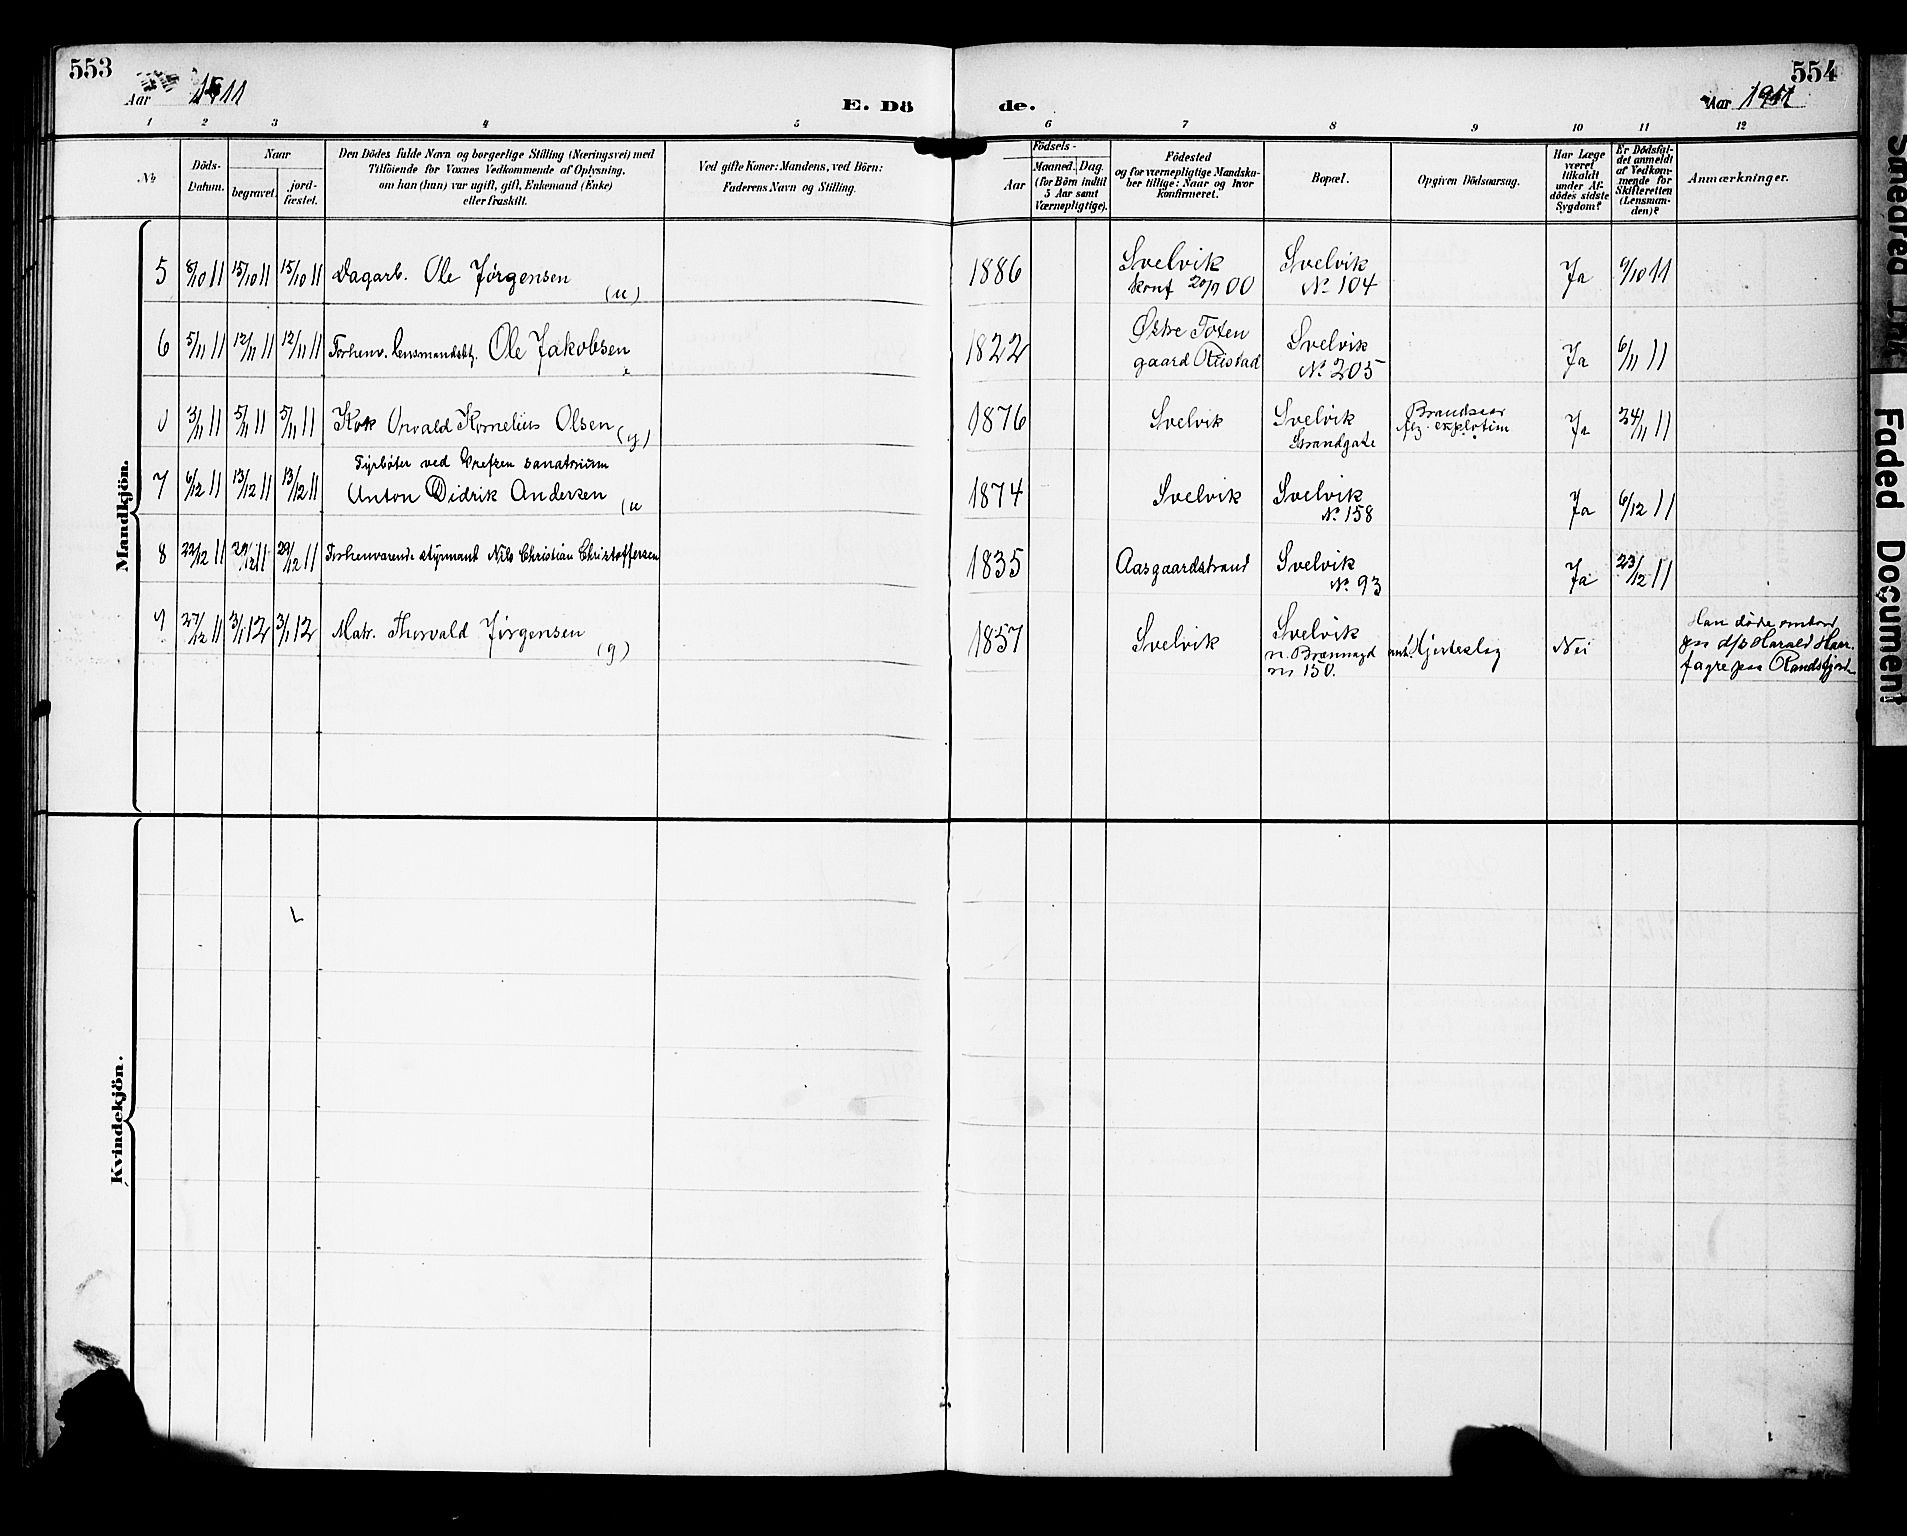 553
554
Aar 1911
E. Dö
de.
Aar 1911
1 2 3 4 5 6 7 8 9 10 11 12
№
Döds-
Datum.
Naar
begravet.
jord-
fæstet.
Den Dödes fulde Navn og borgerlige Stilling (Næringsvei) med
Tilföiende for Voxnes Vedkommende af Oplysning,
om han (hun) var ugift, gift, Enkemand (Enke)
eller fraskilt.
Ved gifte Koner: Mandens, ved Börn:
Faderens Navn og Stilling.
Födsels-
Aar
Maaned. Dag.
(for Börn indtil
5 Aar samt
Værnepligtige).
Födested
og for værnepligtige Mandska-
ber tillige: Naar og hvor
konfirmeret.
Bopæl.
Opgiven Dödsaarsag.
Har Læge
været
tilkaldt
under Af-
dödes sidste
Sygdom?
Er Dödsfal-
det anmeldt
af Vedkom-
mende for
Skifteretten
(Lensman-
den)?
Anmærkninger.
Mandkjön.
5 8/10 11 15/10 11 15/10 11 Dagarb. Ole Jørgensen
(u)
1886 Svelvik
Konf 00
Svelvik
№ 104
Ja 9/10 11
6 5/11 11 12/11 11 12/11 11 Forhenv. Ole Jakobsen
1822 Østre Toten
gaard Rustad
Svelvik
№ 205
Ja 6/11 11
3/11 11 5/11 11 5/11 11 Kok Kornelius Olsen (g)
1876 Svelvik
Svelvik
Strandgate
Ja 24/11 11
7 6/12 11 13/12 11 13/12 11 Fyrbøter ved Grefsen sanatorium
Anton Didrik Andersen (u
1874 Svelvik
Svelvik
№ 158
Ja 6/12 11
8 22/12 11 29/12 11 29/12 11 Forhenværende styrmand Nils Christian Christoffersen
1835 Aasgaardstrand
Svelvik
№ 93
Ja 23/12 11
9 27/12 11 3/1 12 3/1 12 Matr. Thorvald Jørgensen
(g)
1857 Svelvik
Svelvik
150.
Hjerteslag
Nei
Han døde ombord
paa d/s Harald Haar-
fagre paa Randsfjord
Kvindekjön.
Smeared Ink
Faded Document